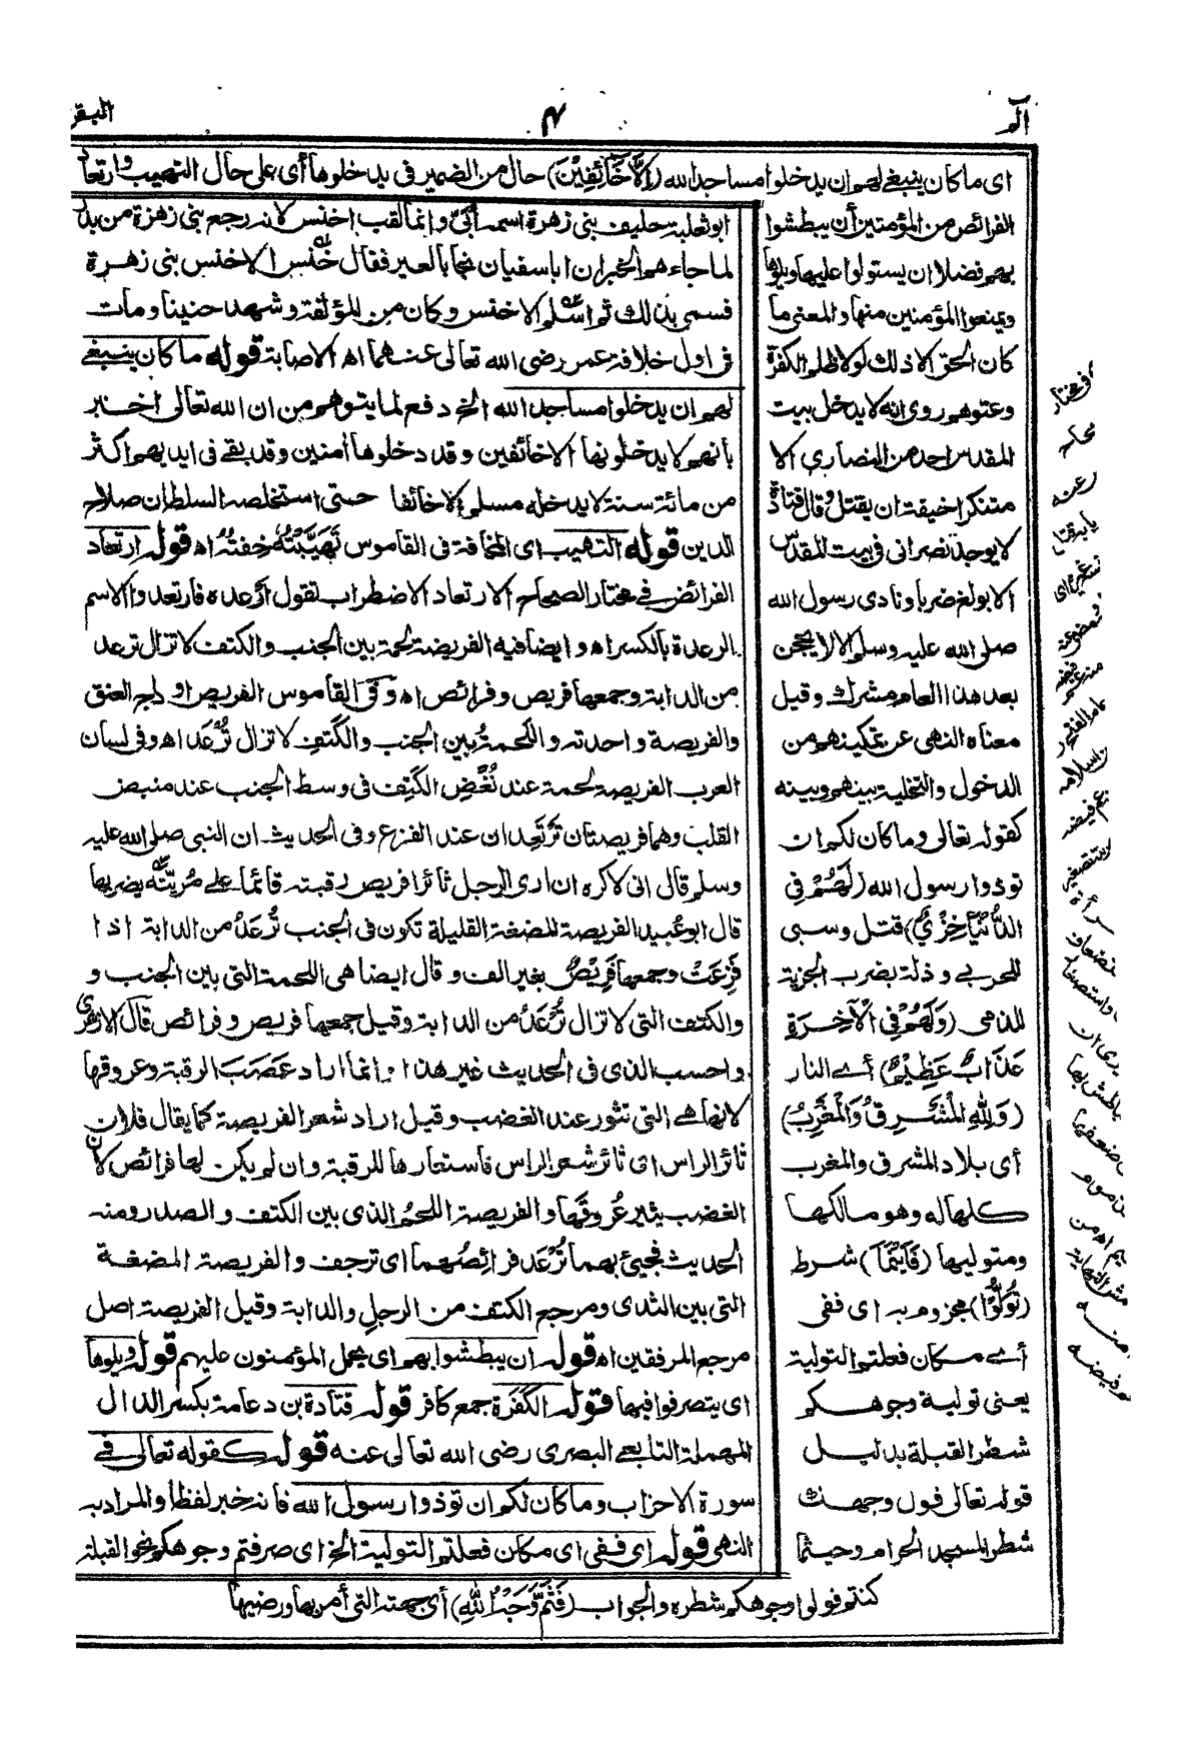 الم
٧
البقر
اى ما كان ينبغى لهم ان يدخلوا مساجد الله (إِلَّا خَآئِفِيْنَ) حال من الضمير فى يدخلوها أى على حال التهيب وارتعاد
الفرائص من المؤمنين أن يبطشوا
بهم فضلا ان يستولوا عليها ويلوها
ويمنعوا المؤمنين منها والمعنى ما
كان الحق الا ذلك لولا ظلم الكفرة
وعتوهم روى انه لا يدخل بيت
المقدس احد من النصارى الا
متنكرا خيفة ان يقتل وقال قتادة
لا يوجد نصرانى فى بيت المقدس
الا بولغ ضربا ونادى رسول الله
صلى الله عليه وسلم الا لا يحجن
بعد هذا العام مشرك وقيل
معناه النهى عن تمكينهم من
الدخول والتخلية بينهم وبينه
كقوله تعالى وما كان لكم ان
توذوا رسول الله (لَهُمْ فِى
الدُّنْيَا خِزْيٌ) قتل وسبى
للحربى وذلة بضرب الجزية
للذمى (وَلَهُمْ فِى الْآخِرَةِ
عَذَابٌ عَظِيْمٌ) أى النار
(وَلِلّٰهِ الْمَشْرِقُ وَالْمَغْرِبُ)
أى بلاد المشرق والمغرب
كلها له وهو مالكها
ومتوليها (فَاَيْنَمَا) شرط
(تُوَلُّوْا) مجزوم به اى ففى
أى مكان فعلتم التولية
يعنى تولية وجوهكم
شطر القبلة بدليل
قوله تعالى فول وجهك
شطر المسجد الحرام وحيثما
ابو ثعلبة حليف بنى زهرة اسمه أبىّ وانما لقب اخنس لانه رجع ببنى زهرة من بدر
لما جاءهم الخبر ان ابا سفيان نجا بالعير فقال خنس الاخنس ببنى زهرة
فسمى بذلك ثم اسلم الاخنس وكان من المؤلفة وشهد حنينا ومات
فى اول خلافة عمر رضى الله تعالى عنهما اه الاصابة قوله ما كان ينبغى
لهم ان يدخلوا مساجد الله الخ دفع لما يتوهم من ان الله تعالى اخبر
بأنهم لا يدخلونها الا خائفين وقد دخلوها أمنين وقد بقى فى ايديهم اكثر
من مائة سنة لا يدخله مسلم الا خائفا حتى استخلصه السلطان صلاح
الدين قوله التهيب اى المخافة فى القاموس تَهَيَّبْتُهُ خِفْتُهُ اه قوله ارتعاد
الفرائص فى مختار الصحاح الارتعاد الاضطراب تقول أَرْعده فارتعد والاسم
الرعدة بالكسر اه وايضا فيه الفريصة لحمة بين الجنب والكتف لا تزال ترعد
من الدابة وجمعها فريص وفرائص اه وفى القاموس الفريص اوداج العنق
والفريصة واحدته واللَحمةُ بين الجنب والكَتِف لا تزال تُرْعَد اه وفى لسان
العرب الفريصة لحمة عند نُغْضِ الكَتِف فى وسط الجنب عند منبض
القلب وهما فريصتان تَرْتَعِدان عند الفزع وفى الحديث ان النبى صلى الله عليه
وسلم قال انى لاكره ان ارى الرجل ثائرا فريص رقبته قائما على مُريَّته يضربها
قال ابو عُبيد الفريصة المضغة القليلة تكون فى الجنب تُرْعَدُ من الدابة اذا
فَزِعَتْ وجمعها فَرِيْصٌ بغير الف وقال ايضا هى اللحمة التى بين الجنب و
والكتف التى لا تزال تُرْعَدُ من الدابة وقيل جمعها فريص وفرائص قال الازهرى
واحسب الذى فى الحديث غير هذا وانما أراد عَصَبَ الرقبة وعروقها
لانها هى التى تثور عند الغضب وقيل اراد شعر الفريصة كما يقال فلان
ثائر الراس اى ثائر شعر الراس فاستعارها للرقبة وان لم يكن لها فرائص لان
الغضب يثير عُروقَها والفريصة اللحمُ الذى بين الكتف والصدر ومنه
الحديث فجيئ بهما تُرْعَد فرائِصُهما اى ترجف والفريصة المضغة
التى بين الثدى ومرجع الكتف من الرجل والدابة وقيل الفريصة اصل
مرجع المرفقين اه قوله ان يبطشوا بهم اى يحمل المؤمنون عليهم قوله ويلوها
اى يتصرفوا فيها قوله الكَفَرَة جمع كافر قوله قتادة بن دعامة بكسر الدال
المهملة التابعى البصرى رضى الله تعالى عنه قوله كقوله تعالى فى
سورة الاحزاب وما كان لكم ان توذوا رسول الله فانه خبر لفظا والمراد به
النهى قوله اى ففى اى مكان فعلتم التولية الخ اى صرفتم وجوهكم نحو القبلة
كنتم فولوا وجوهكم شطره والجواب (فَثَمَّ وَجْهُ اللّٰهِ) أى جهته التى أمر بها ورضيها